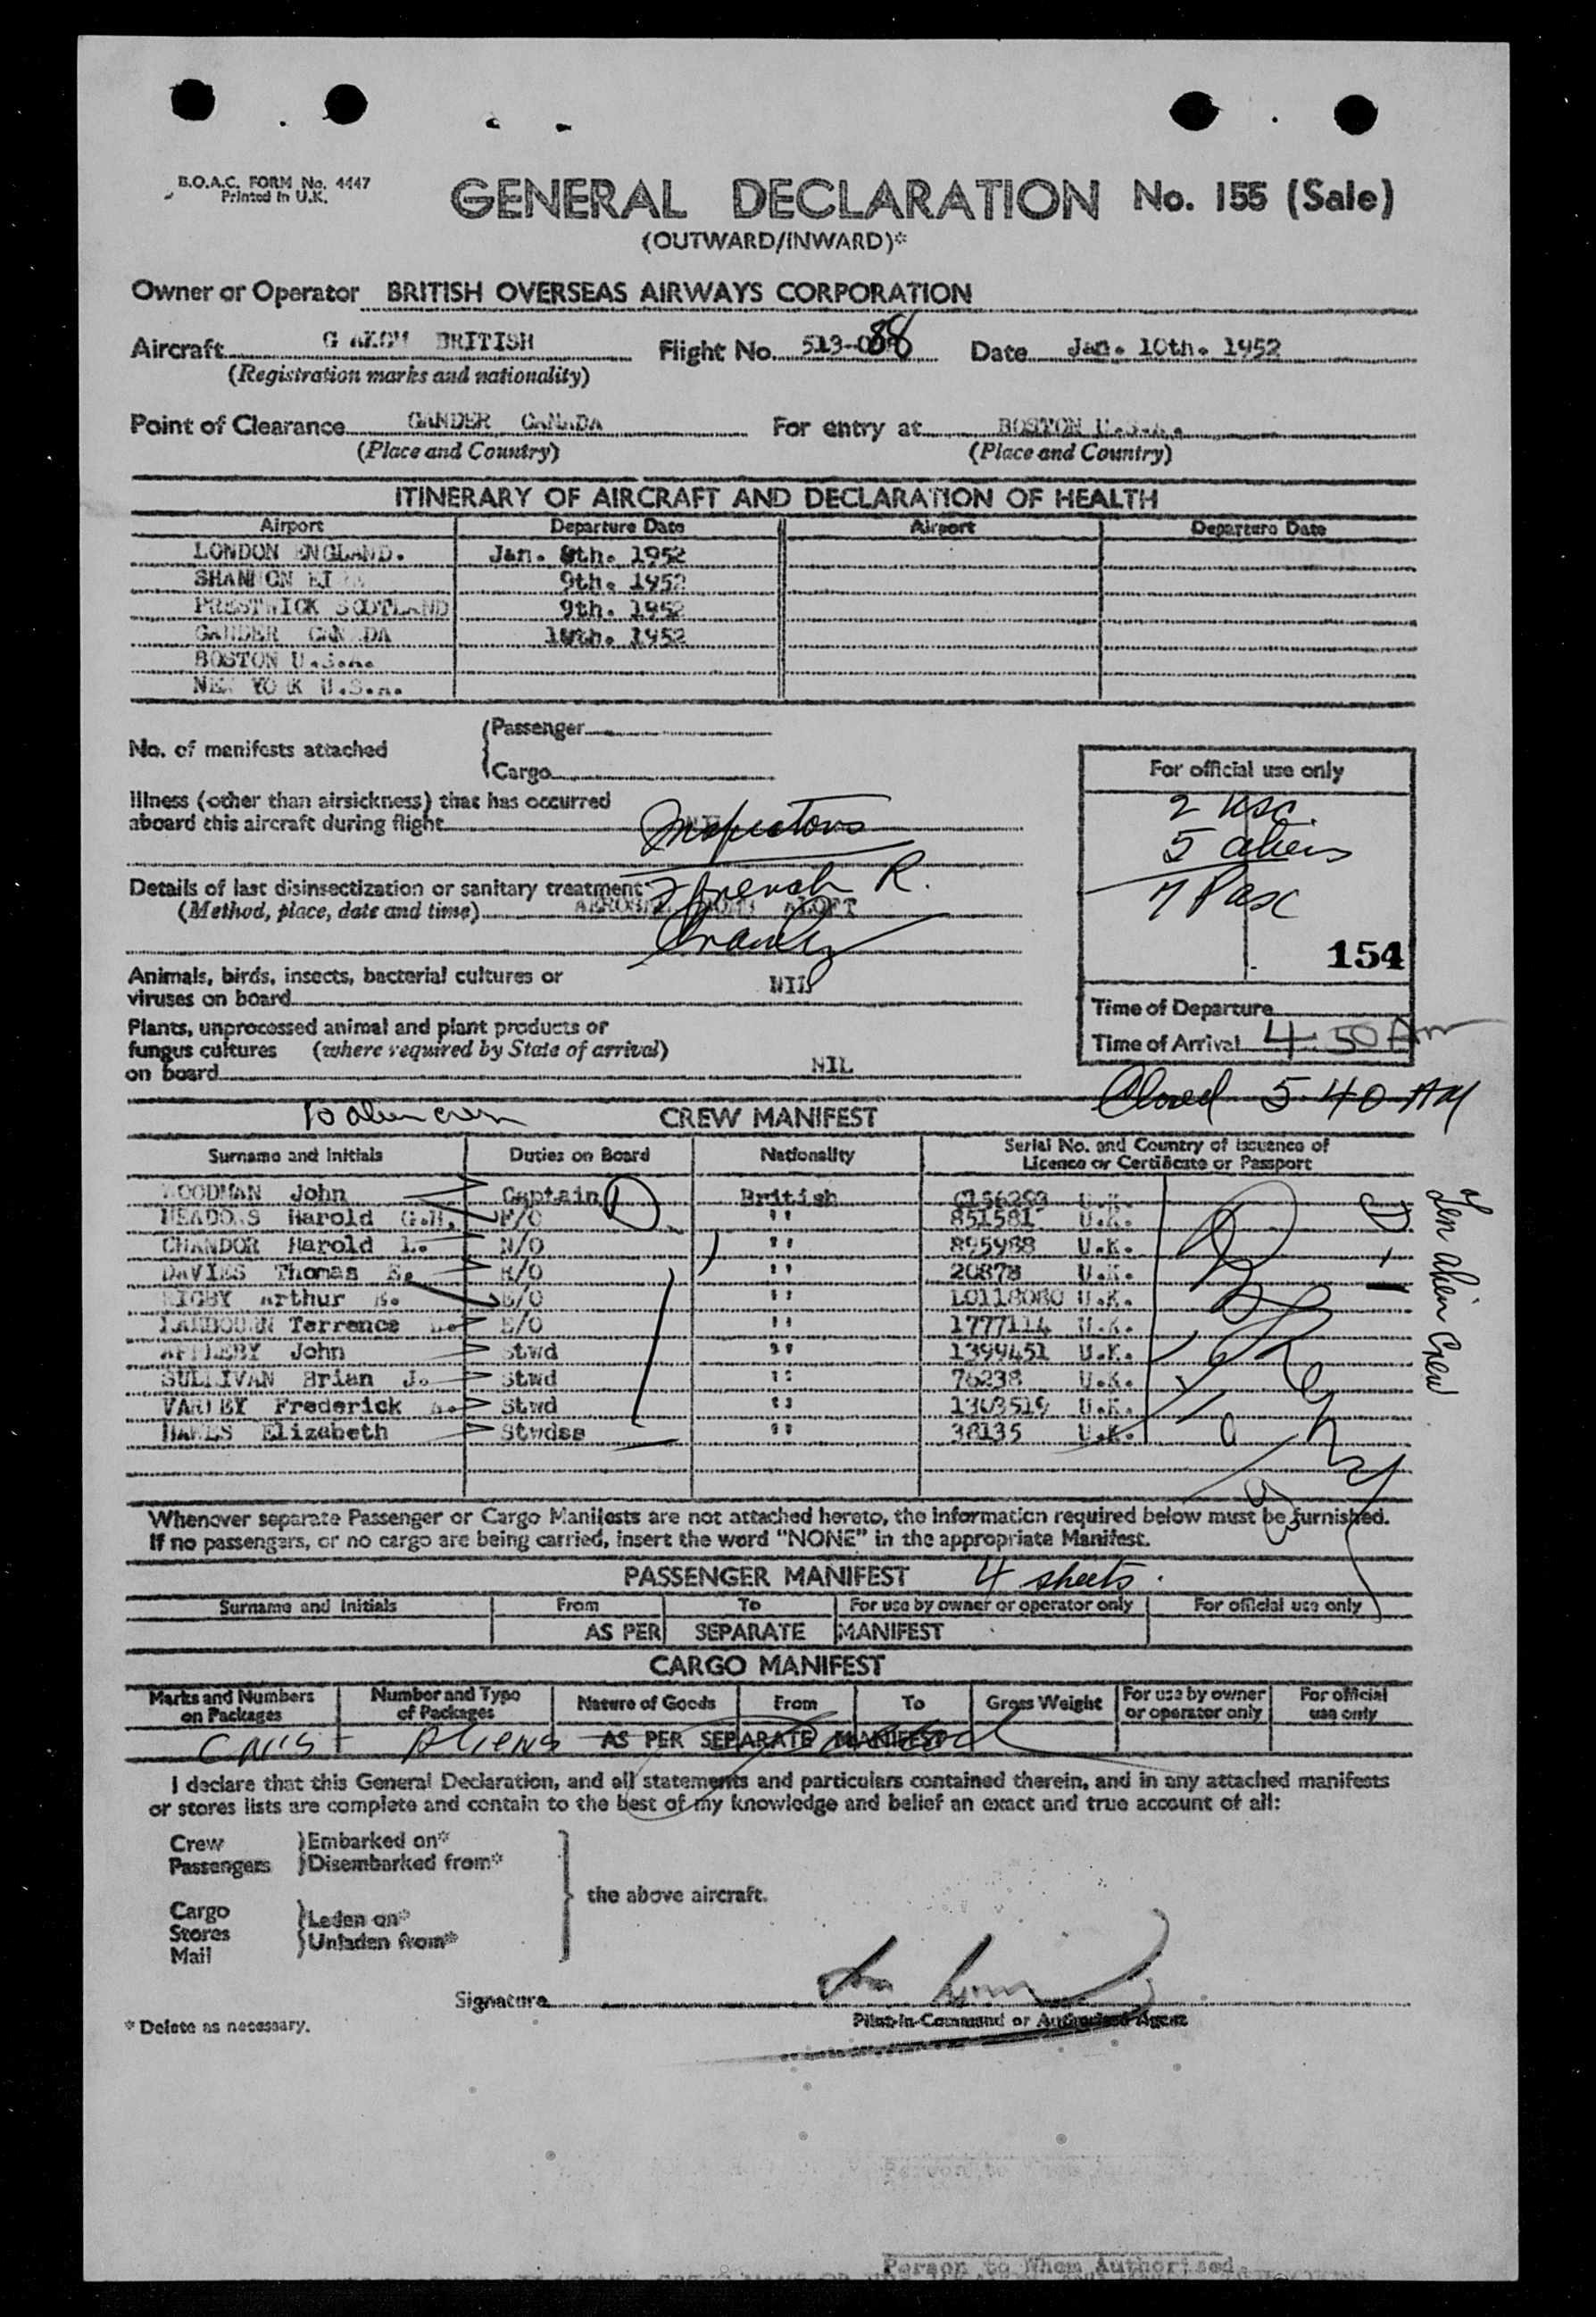 B.O.A.C. FORM No. 4447
Printed in U.K.
GENERAL DECLARATION No. 155 (Sale)
(OUTWARD/INWARD)*
Owner or Operator BRITISH OVERSEAS AIRWAYS CORPORATION
Aircraft BRITISH Flight No. 513-088 Date Jan. 10th. 1952
(Registration marks and nationality)
Point of Clearance GANDER CANADA For entry at BOSTON U.S.A.
(Place and Country) (Place and Country)
ITINERARY OF AIRCRAFT AND DECLARATION OF HEALTH
Airport Departure Date Airport Departure Date
LONDON ENGLAND. Jan. 1952
SHANNON 9th. 1952
PRESTWICK SCOTLAND 9th. 1952
GANDER CANADA 10th. 1952
BOSTON U.S.A.
NEW YORK U.S.A.
No. of manifests attached
Passenger
Cargo
For official use only
2 usc.
5 aliens
7 Pasc
154
Illness (other than airsickness) that has occurred
aboard this aircraft during flight Inspectors
Details of last disinsectization or sanitary treatment
(Method, place, date and time) AEROSOL ALOFT
Animals, birds, insects, bacterial cultures or
viruses on board NIL
Plants, unprocessed animal and plant products or
fungus cultures (where required by State of arrival)
on board NIL
Time of Departure
Time of Arrival 4:50 Am
Closed 5-40 AM
10 alien crew CREW MANIFEST
Surname and Initials Duties on Board Nationality Serial No. and Country of Issuance of
Licence or Certificate or Passport
WOODMAN John Captain British U.K.
MEADOWS Harold G.H. F/O " 851581 U.K.
CHANDOR Harold L. N/O " 895988 U.K.
DAVIES Thomas E. R/O " 20878 U.K.
RIGBY Arthur E/O " 10118080 U.K.
Terrence E/O " 1777114 U.K.
APPLEBY John Stwd " 1399451 U.K.
SULLIVAN Brian J. Stwd " 76238 U.K.
VARLEY Frederick Stwd " 1303519 U.K.
HAWES Elizabeth Stwdss " 38135 U.K.
Ten alien crew
Whenever separate Passenger or Cargo Manifests are not attached hereto, the information required below must be furnished.
If no passengers, or no cargo are being carried, insert the word "NONE" in the appropriate Manifest.
PASSENGER MANIFEST 4 sheets.
Surname and Initials From To For use by owner or operator only For official use only
AS PER SEPARATE MANIFEST
CARGO MANIFEST
Marks and Numbers on Packages Number and Type of Packages Nature of Goods From To Gross Weight For use by owner or operator only For official use only
Aliens AS PER SEPARATE MANIFEST
I declare that this General Declaration, and all statements and particulars contained therein, and in any attached manifests
or stores lists are complete and contain to the best of my knowledge and belief an exact and true account of all:
Crew Embarked on*
Passengers Disembarked from*
the above aircraft.
Cargo Laden on*
Stores
Mail Unladen from*
Signature
Pilot-in-Command or Authorised Agent
* Delete as necessary.
Person to
Person to Whom Authorised